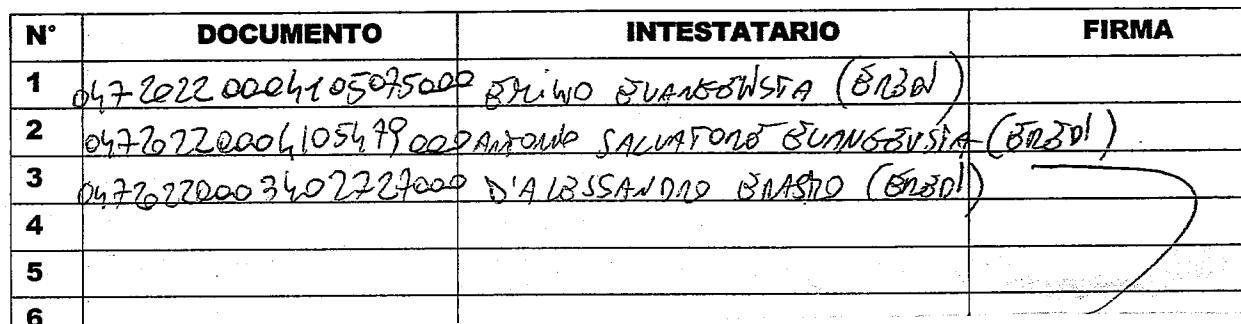 N° DOCUMENTO INTESTATARIO FIRMA
1 04720220004105075000 EVANGELISTA (EREDI)
2 04720220004105479000 ANTONIO SALVATORE EVANGELISTA (EREDI)
3 04720220003402727000 D'ALESSANDRO ERASMO (EREDI)
4
5
6